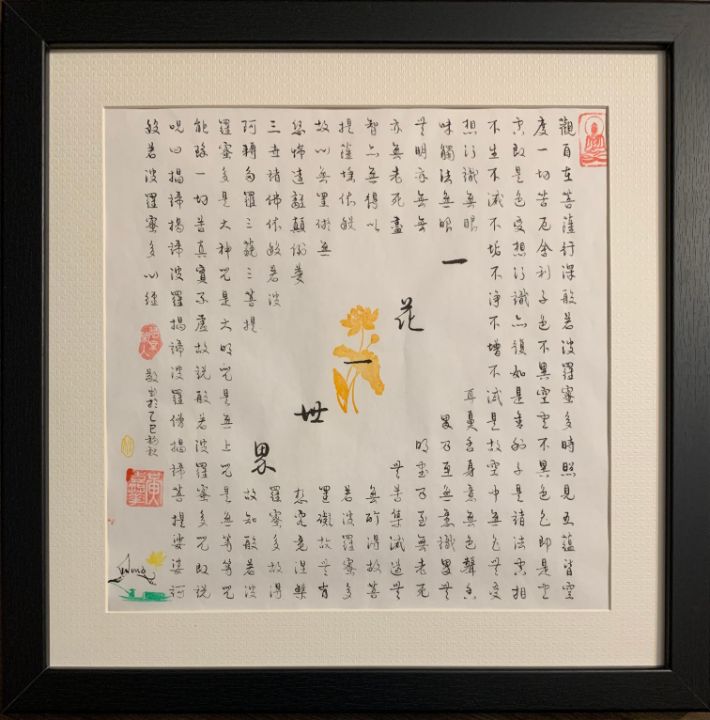 觀自在菩薩行深般若波羅蜜多時照見五蘊皆空
度一切苦厄舍利子色不異空空不異色色即是空
空即是色受想行識亦復如是舍利子是諸法空相
不生不滅不垢不淨不增不減是故空中無色無受
想行識無眼耳鼻舌身意無色聲香
味觸法無眼界乃至無意識界無
無明亦無無明盡乃至無老死
亦無老死盡無苦集滅道無
智亦無得以無所得故菩
提薩埵依般若波羅蜜多
故心無罣礙無罣礙故無有
恐怖遠離顛倒夢想究竟涅槃
三世諸佛依般若波羅蜜多故得
阿耨多羅三藐三菩提故知般若波
羅蜜多是大神咒是大明咒是無上咒是無等等咒
能除一切苦真實不虛故說般若波羅蜜多咒即說
咒曰揭諦揭諦波羅揭諦波羅僧揭諦菩提娑婆訶
般若波羅蜜多心經
敬書於乙巳初秋
一花一世界